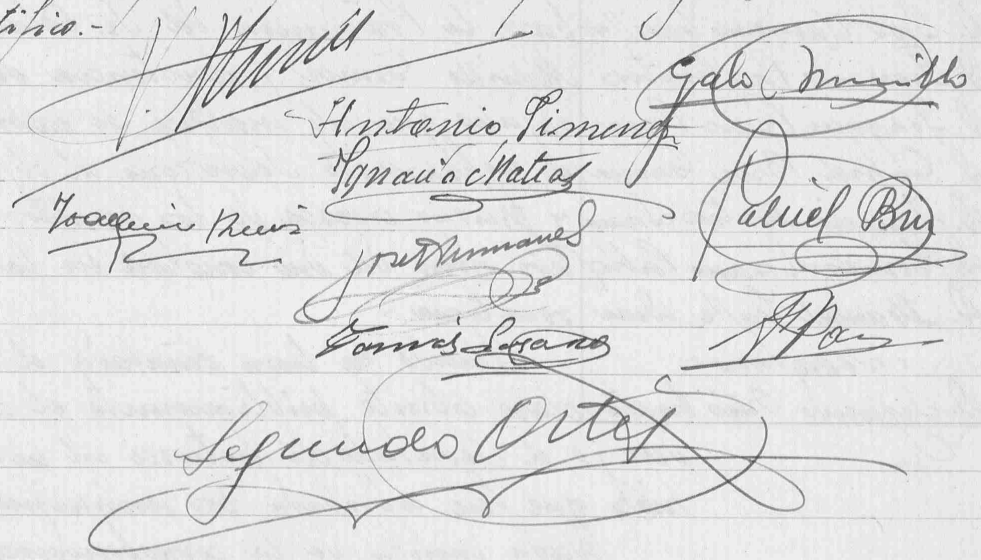 tifico.-
Galo Murillo
Antonio Jimenez
Ignacio Matias
Joaquin Ruiz
Gabriel Bru
José Manuel
Tomás Lozano
Segundo Ortej